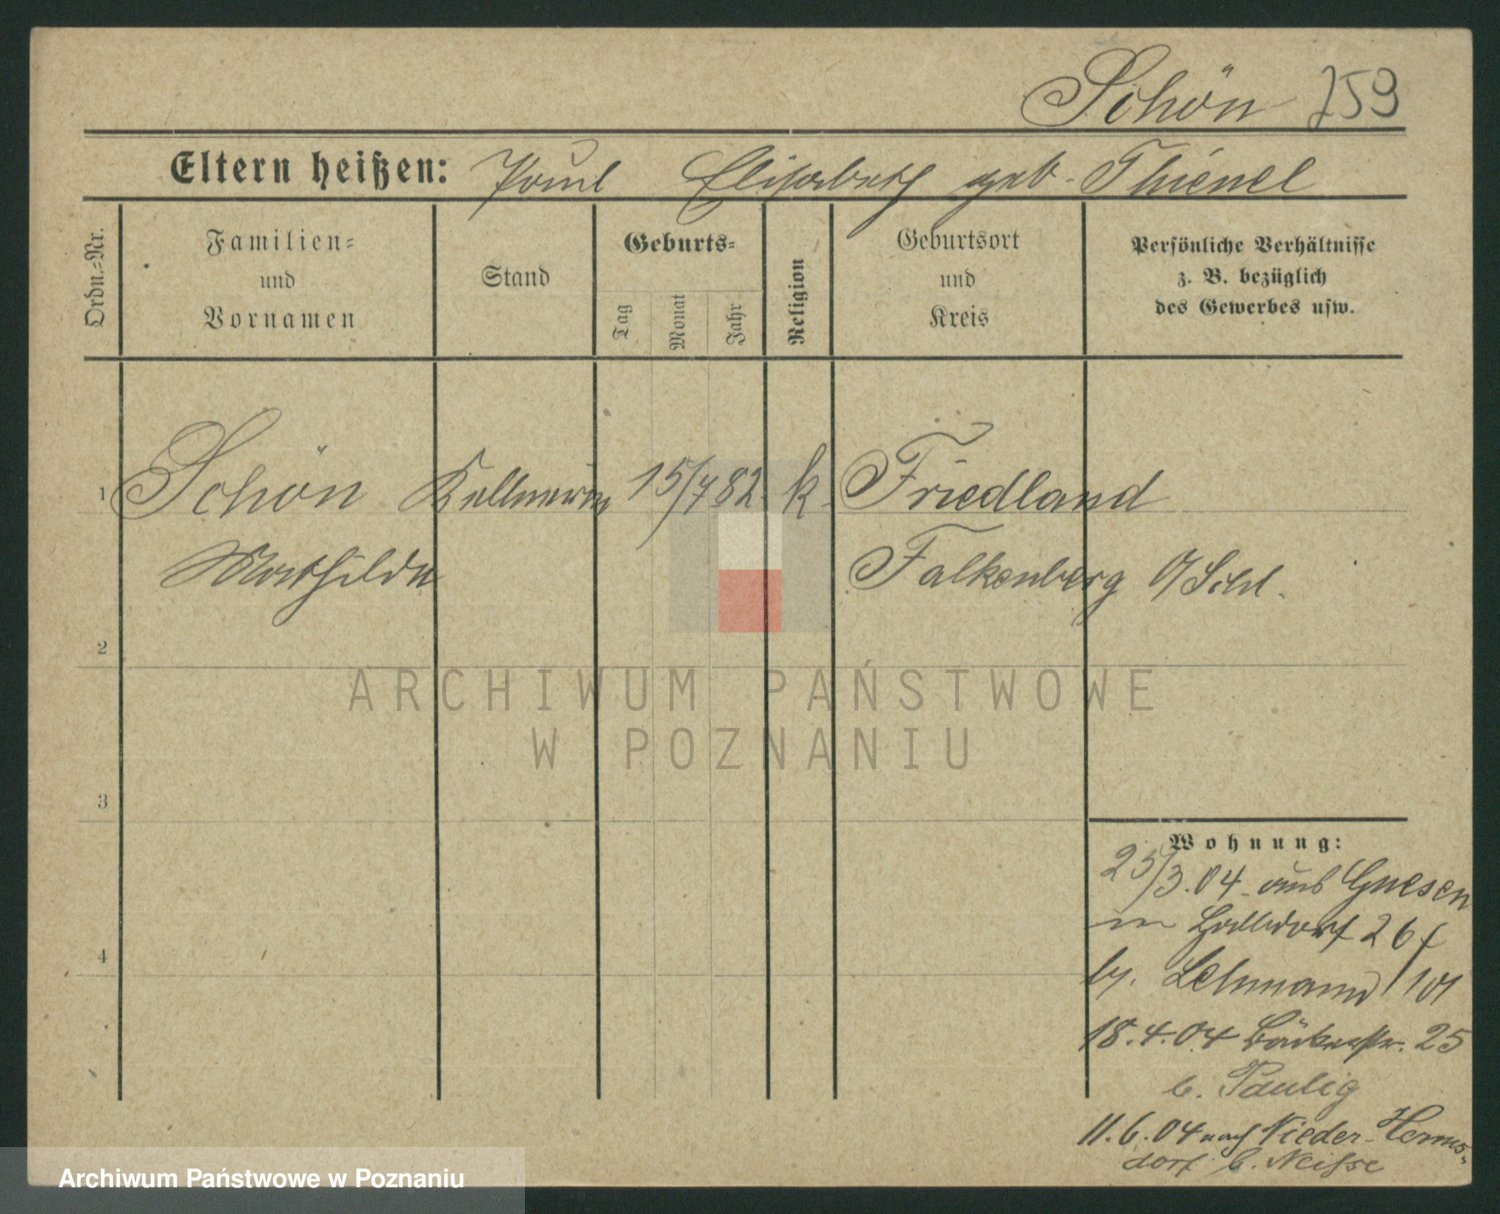 Schön 759
Eltern heißen: Paul Elisabeth geb. Thienel
Ordn.-Nr.
Familien-
und
Vornamen
Stand
Geburts-
Tag
Monat
Jahr
Religion
Geburtsort
und
Kreis
Persönliche Verhältnisse
z. B. bezüglich
des Gewerbes usw.
1 Schön Kellnerin 15/7 82 k. Friedland
Mathilde Falkenberg O/Schl.
2
ARCHIWUM PAŃSTWOWE
W POZNANIU
3
Wohnung:
25/3.04 aus Gnesen
in Halldorf 26
b. Lehmann
18.4.04 Bäckerstr. 25
b. Paulig
4
11.6.04 nach Nieder-Herms-
dorf b. Neisse
Archiwum Państwowe w Poznaniu